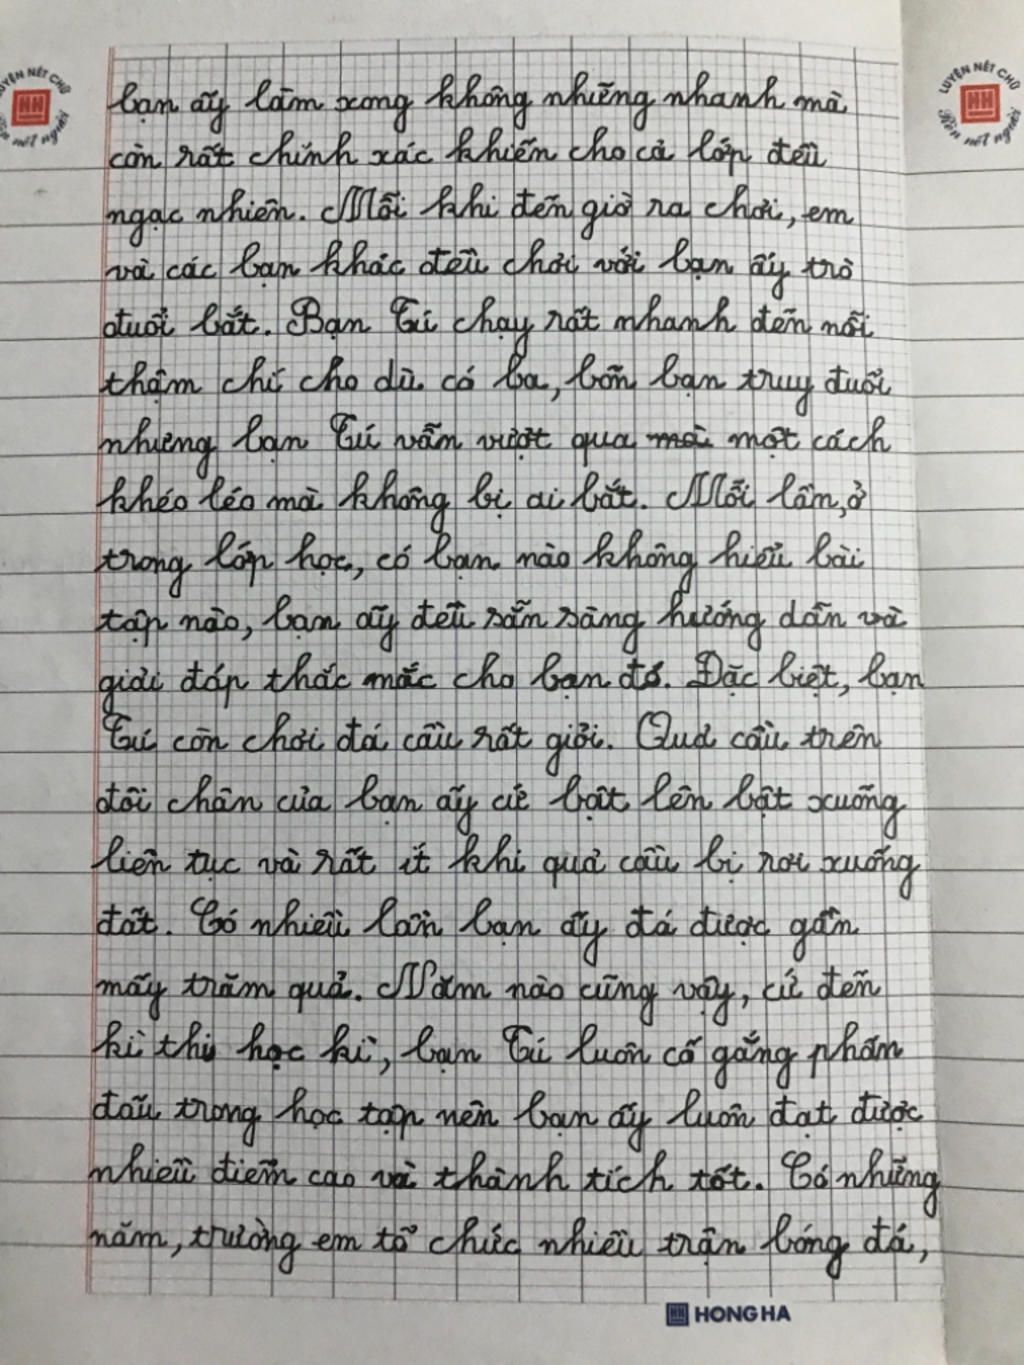 LUYỆN NÉT CHỮ
Rèn nết người
LUYỆN NÉT CHỮ
Rèn nết người
bạn ấy làm xong không những nhanh mà
còn rất chính xác khiến cho cả lớp đều
ngạc nhiên. Mỗi khi đến giờ ra chơi, em
và các bạn khác đều chơi với bạn ấy trò
đuổi bắt. Bạn Tú chạy rất nhanh đến nỗi
thậm chí cho dù có ba, bốn bạn truy đuổi
nhưng bạn Tú vẫn vượt qua mà một cách
khéo léo mà không bị ai bắt. Mỗi lần, ở
trong lớp học, có bạn nào không hiểu bài
tập nào, bạn ấy đều sẵn sàng hướng dẫn và
giải đáp thắc mắc cho bạn đó. Đặc biệt, bạn
Tú còn chơi đá cầu rất giỏi. Quả cầu trên
đôi chân của bạn ấy cứ bật lên bật xuống
liên tục và rất ít khi quả cầu bị rơi xuống
đất. Có nhiều lần bạn ấy đá được gần
mấy trăm quả. Năm nào cũng vậy, cứ đến
kì thi học kì, bạn Tú luôn cố gắng phấn
đấu trong học tập nên bạn ấy luôn đạt được
nhiều điểm cao và thành tích tốt. Có những
năm, trường em tổ chức nhiều trận bóng đá,
HONG HA